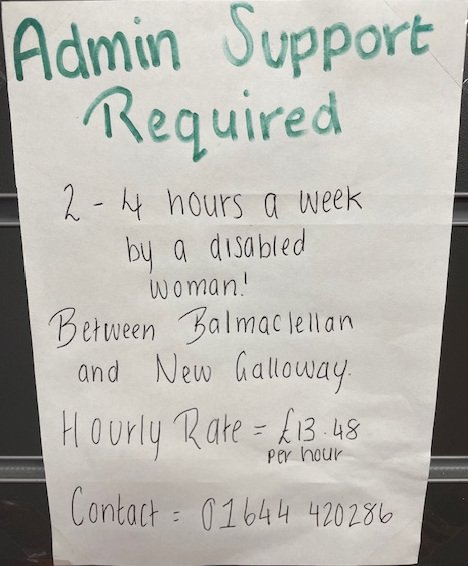 Admin Support
Required
2 - 4 hours a week
by a disabled
woman!
Between Balmaclellan
and New Galloway.
Hourly Rate = £13.48
per hour
Contact = 01644 420286